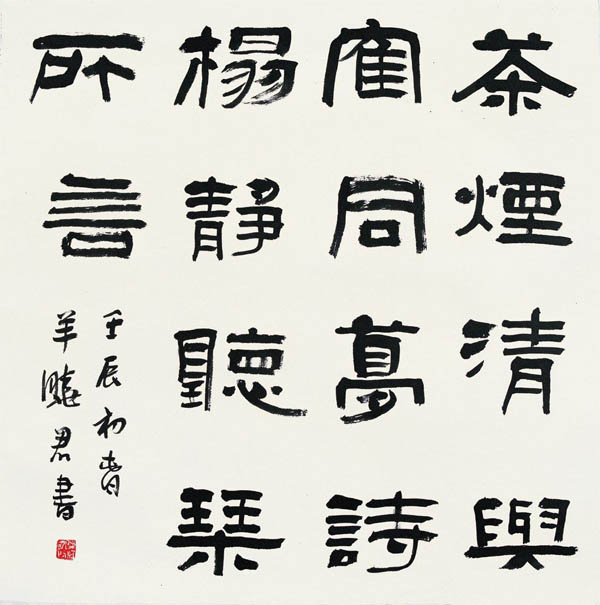 茶煙清與
寉同夢詩
榻靜聽琹
所言
壬辰初春
羊曉君書